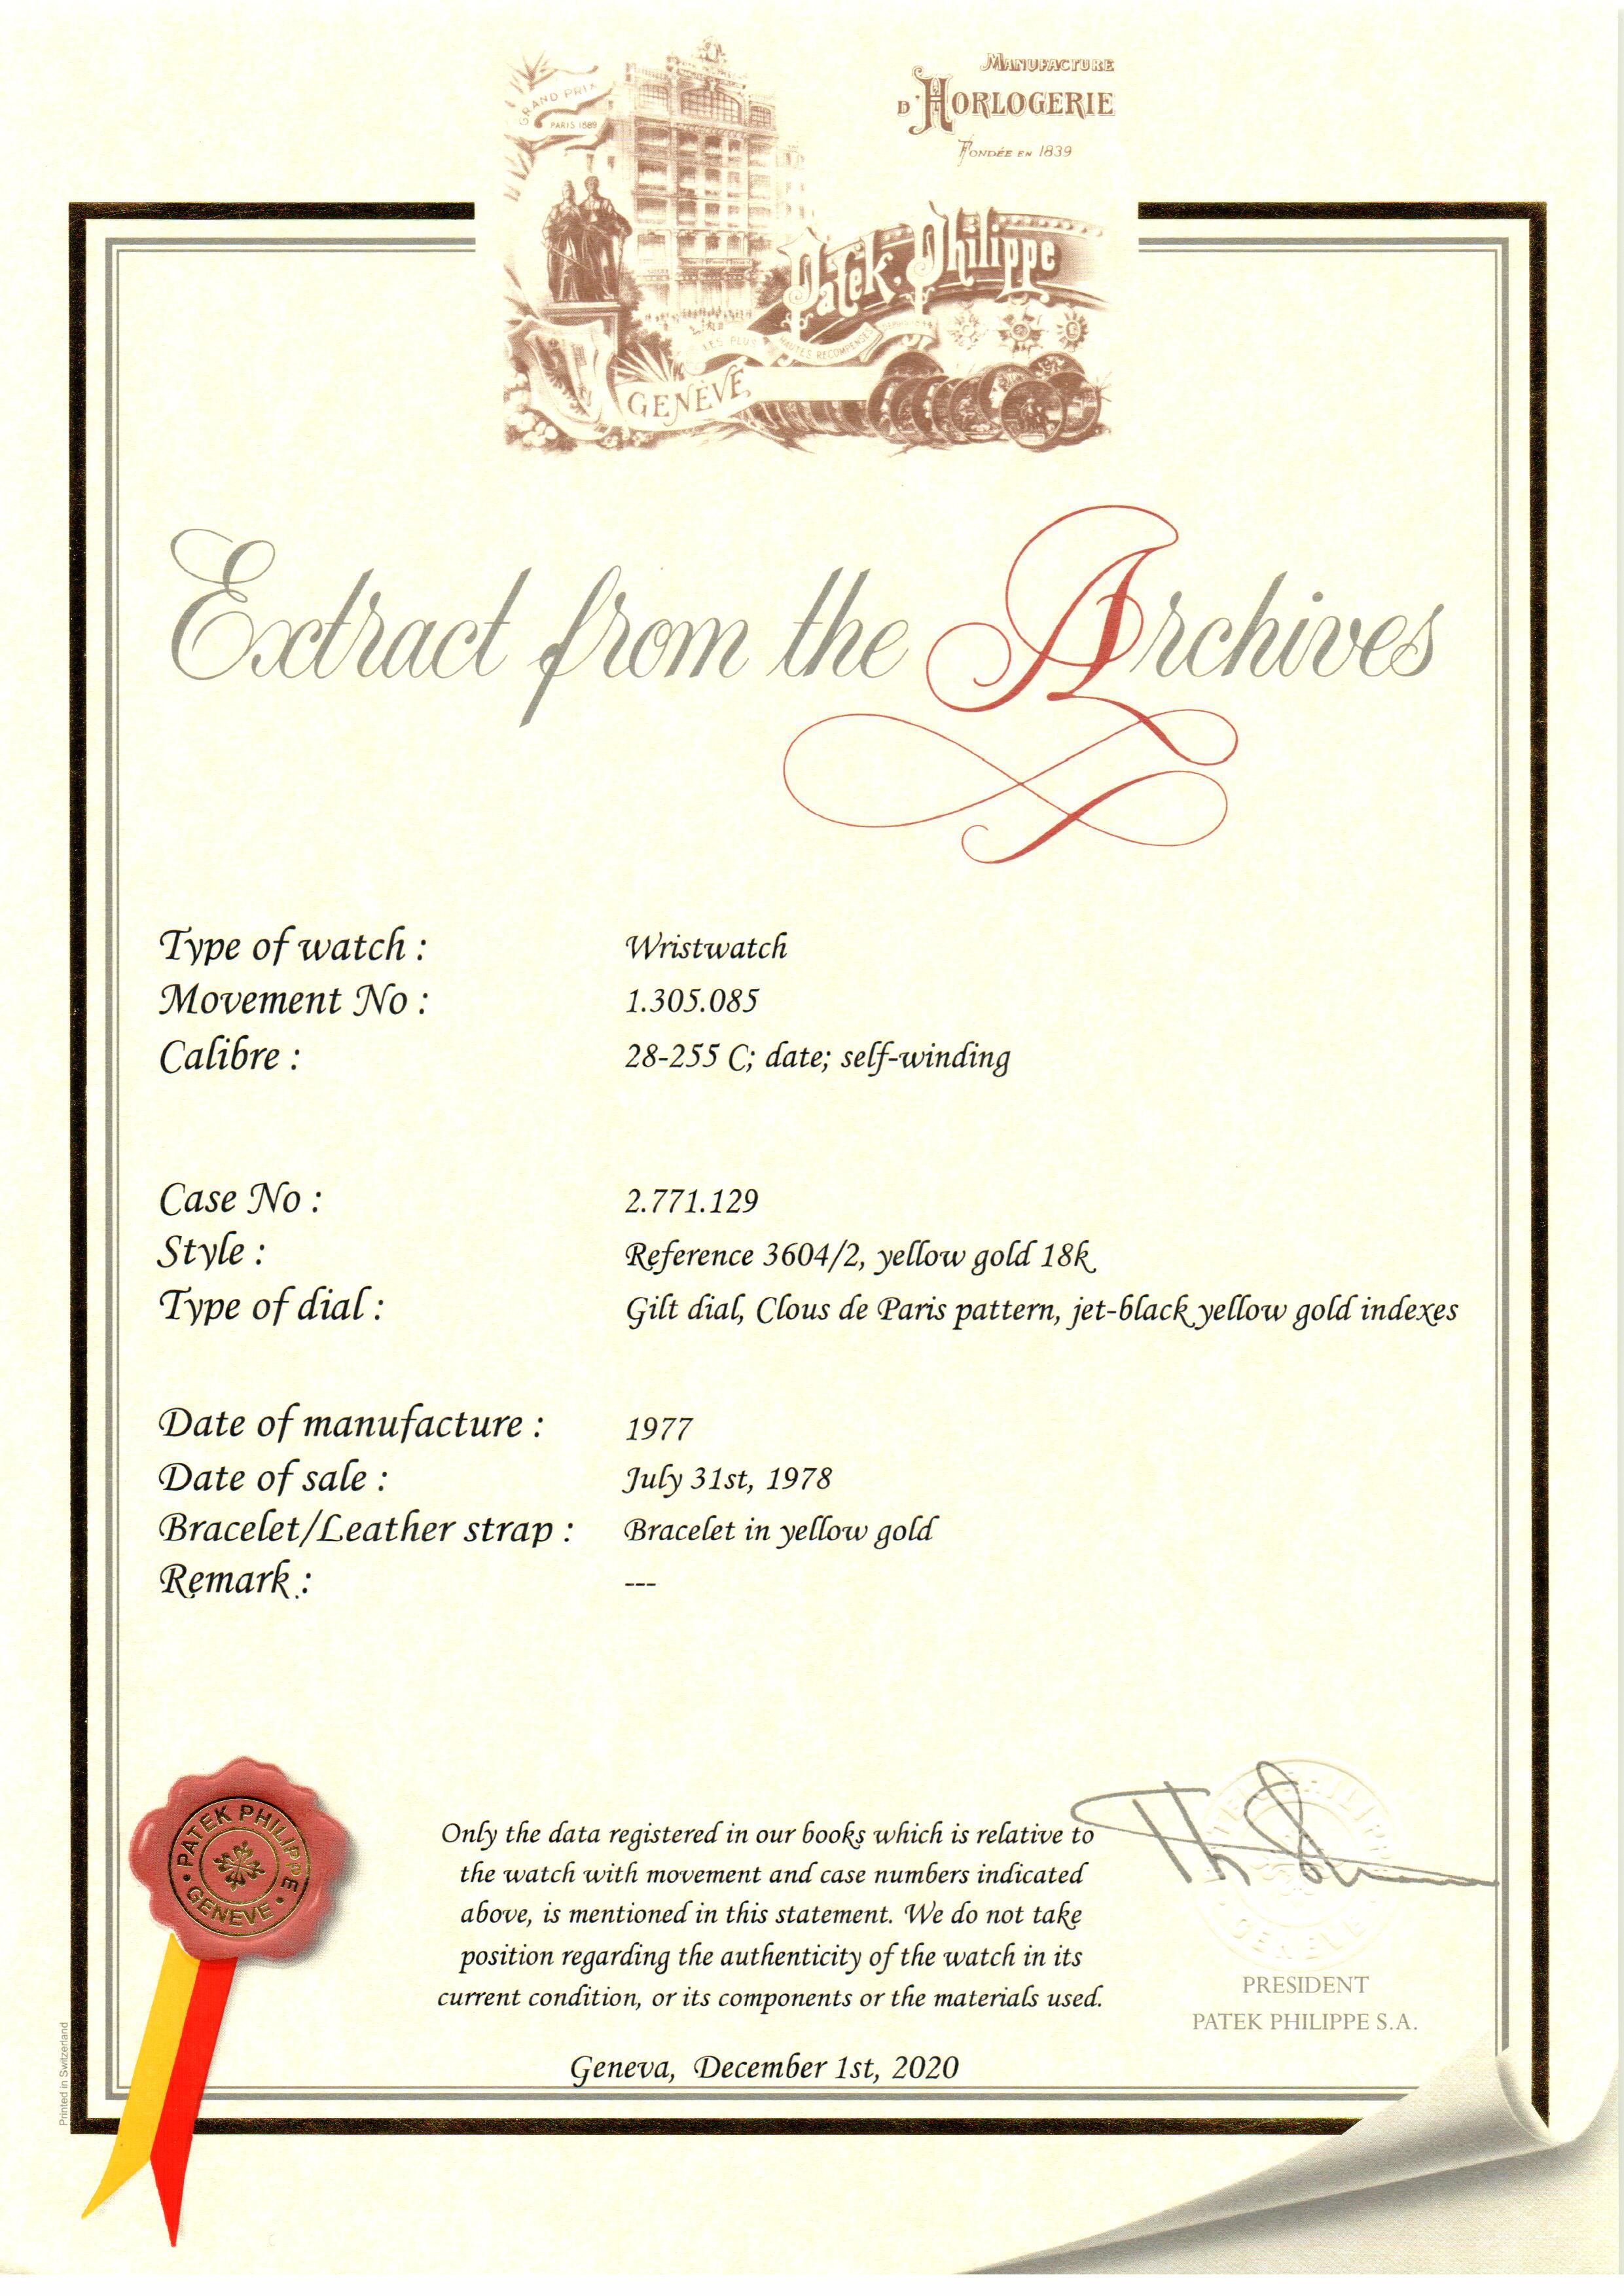 MANUFACTURE
D'HORLOGERIE
FONDÉE EN 1839
GRAND PRIX
PARIS 1889
Patek Philippe
LES PLUS HAUTES RECOMPENSES
GENÈVE
Extract from the Archives
Type of watch : Wristwatch
Movement No : 1.305.085
Calibre : 28-255 C; date; self-winding
Case No : 2.771.129
Style : Reference 3604/2, yellow gold 18k
Type of dial : Gilt dial, Clous de Paris pattern, jet-black yellow gold indexes
Date of manufacture : 1977
Date of sale : July 31st, 1978
Bracelet/Leather strap : Bracelet in yellow gold
Remark : ---
PATEK PHILIPPE
GENEVE
Only the data registered in our books which is relative to
the watch with movement and case numbers indicated
above, is mentioned in this statement. We do not take
position regarding the authenticity of the watch in its
current condition, or its components or the materials used.
PRESIDENT
PATEK PHILIPPE S.A.
Geneva, December 1st, 2020
Printed in Switzerland